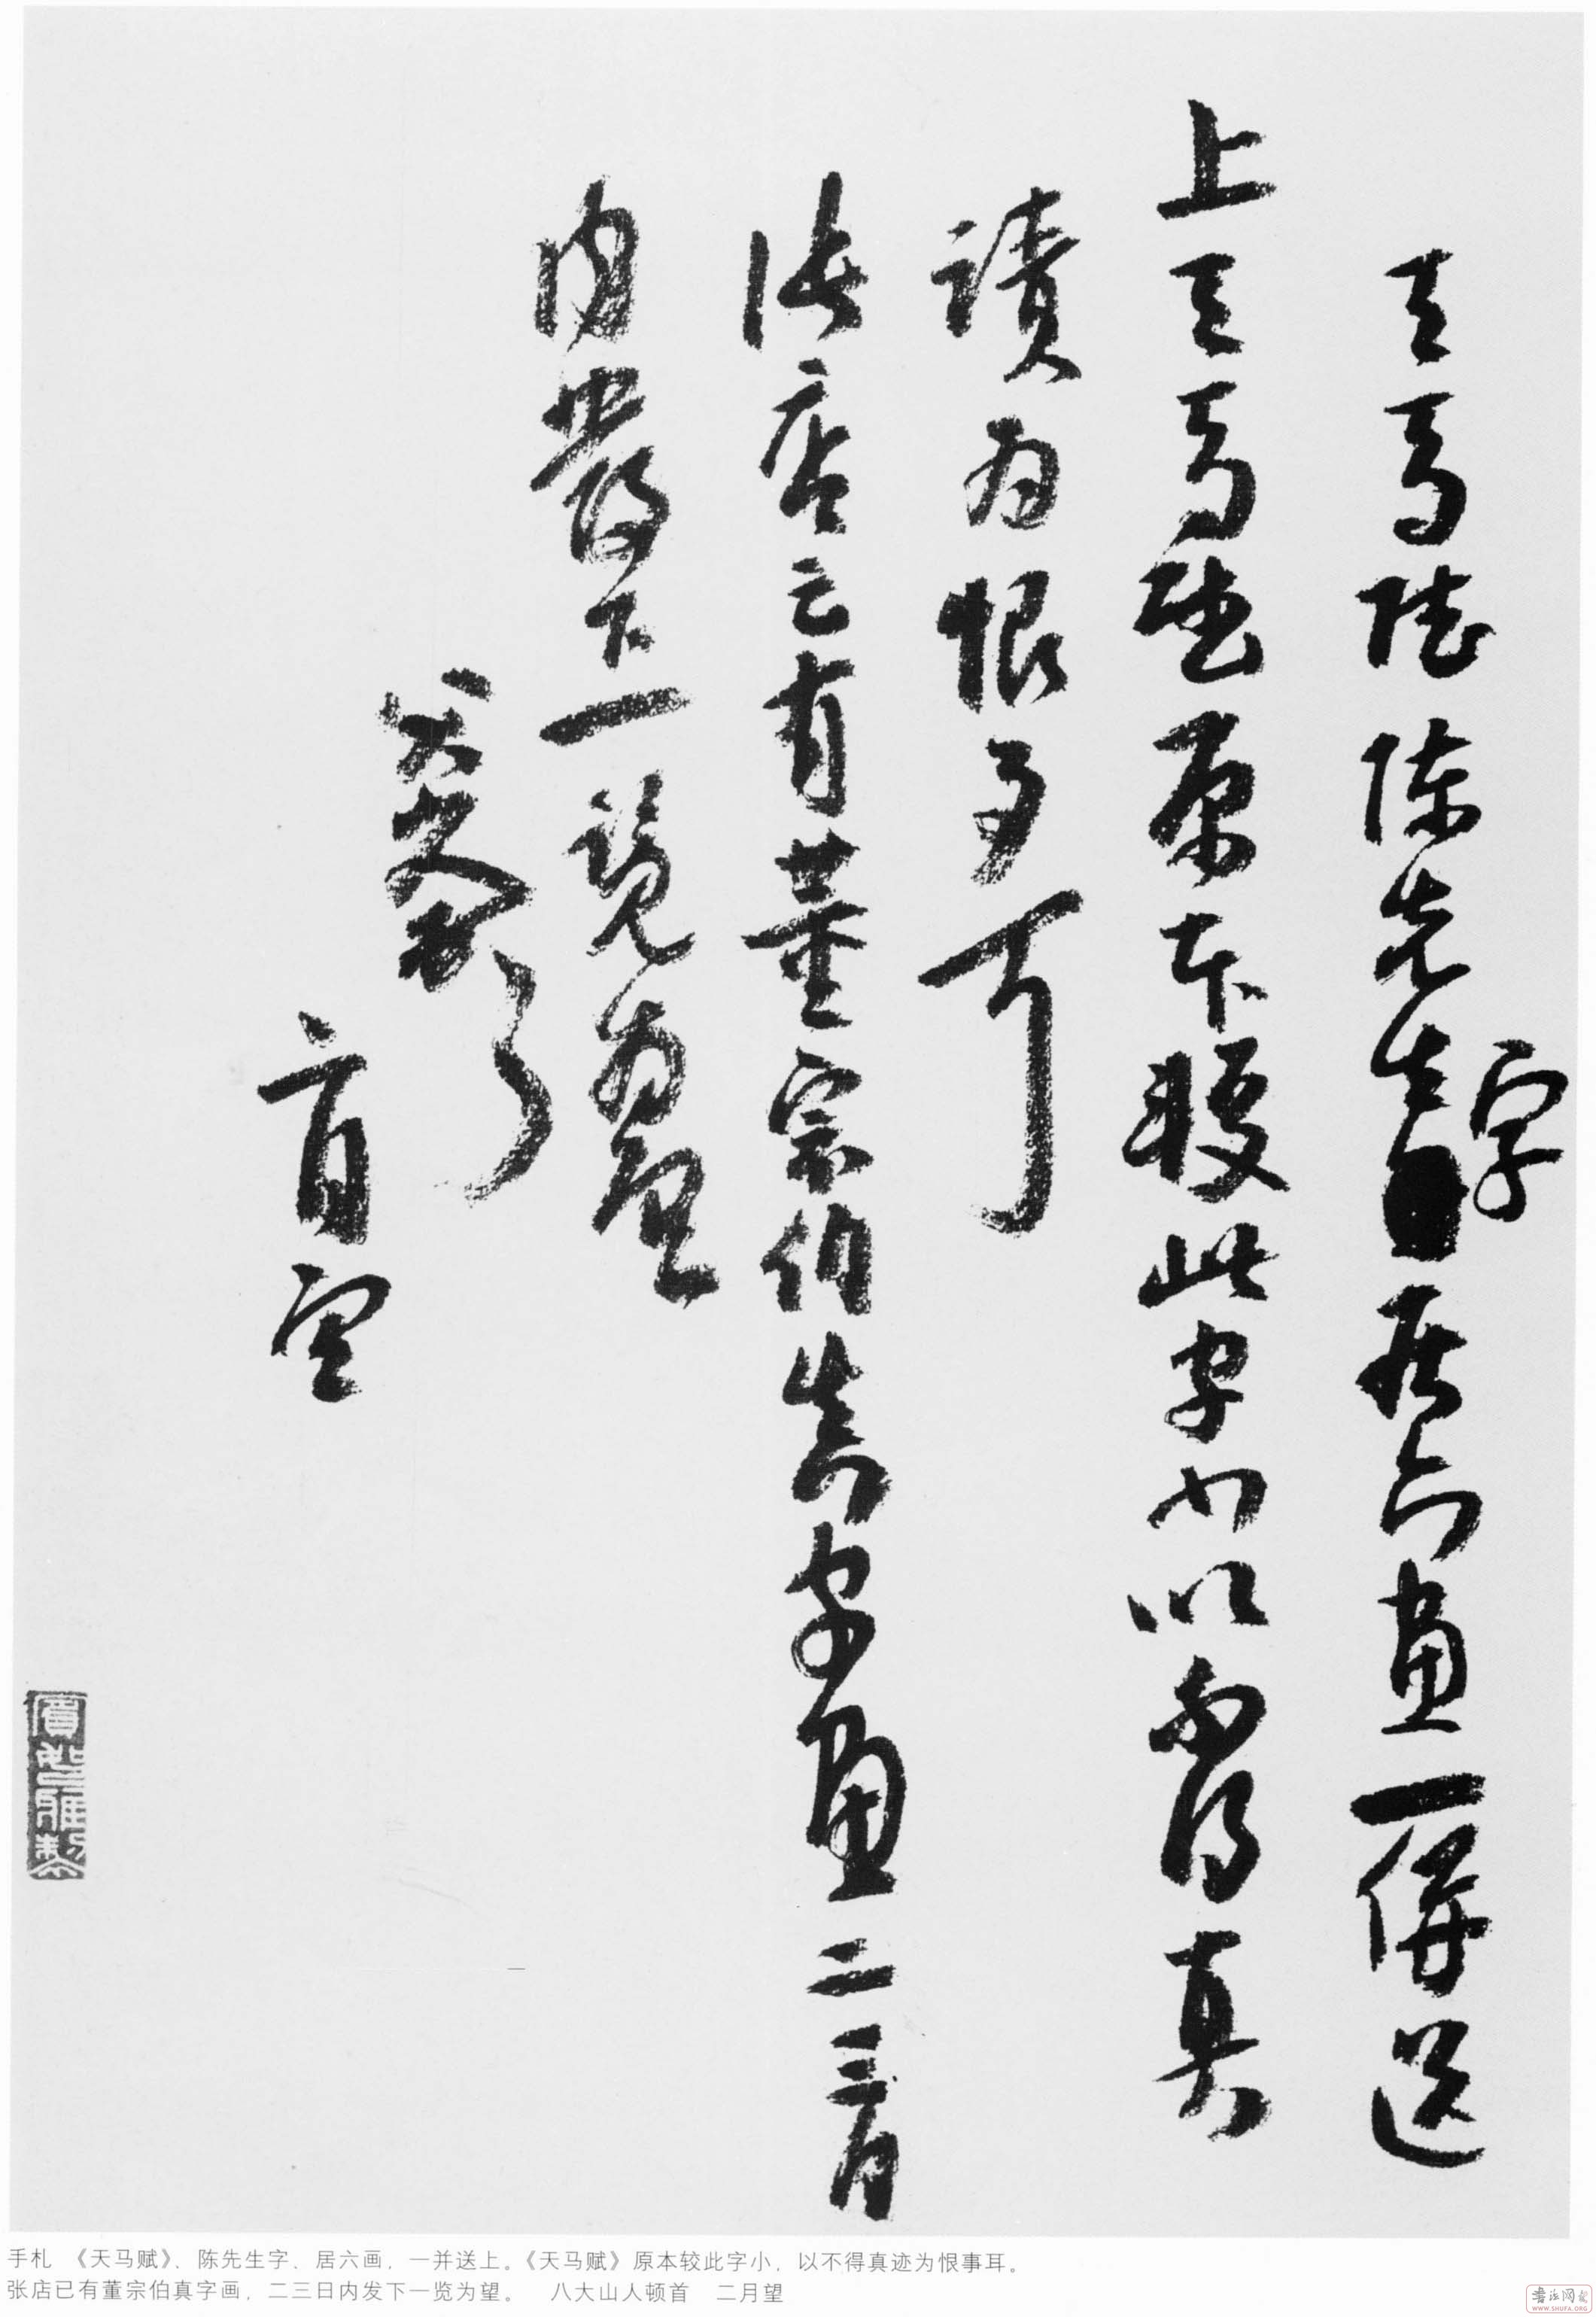 天馬賦陳先生字居六畫一併送
上天馬賦原本較此字小以不得真
蹟為恨事耳
張店已有董宗伯真字畫二三日
内發下一覽為望
八大山人頓首
二月望
手札 《天马赋》、陈先生字、居六画，一并送上。《天马赋》原本较此字小，以不得真迹为恨事耳。
张店已有董宗伯真字画，二三日内发下一览为望。 八大山人顿首 二月望
書法网
WWW.SHUFA.ORG